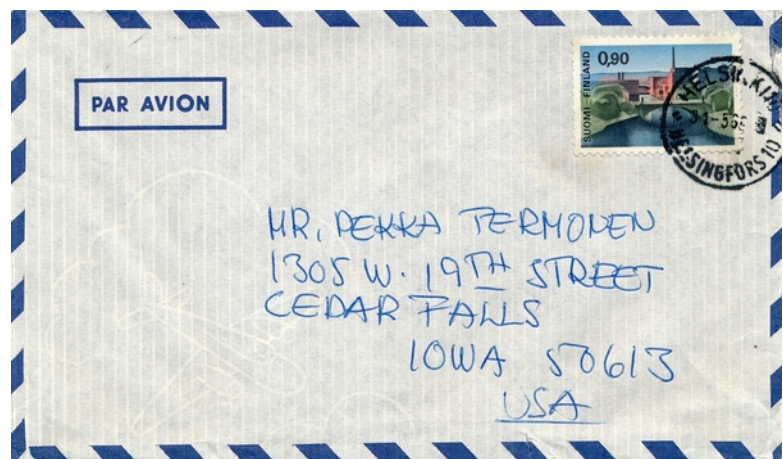 PAR AVION
SUOMI-FINLAND
0,90
HELSINKI
HELSINGFORS 10
MR. PEKKA TERMONEN
1305 W. 19TH STREET
CEDAR FALLS
IOWA 50613
USA